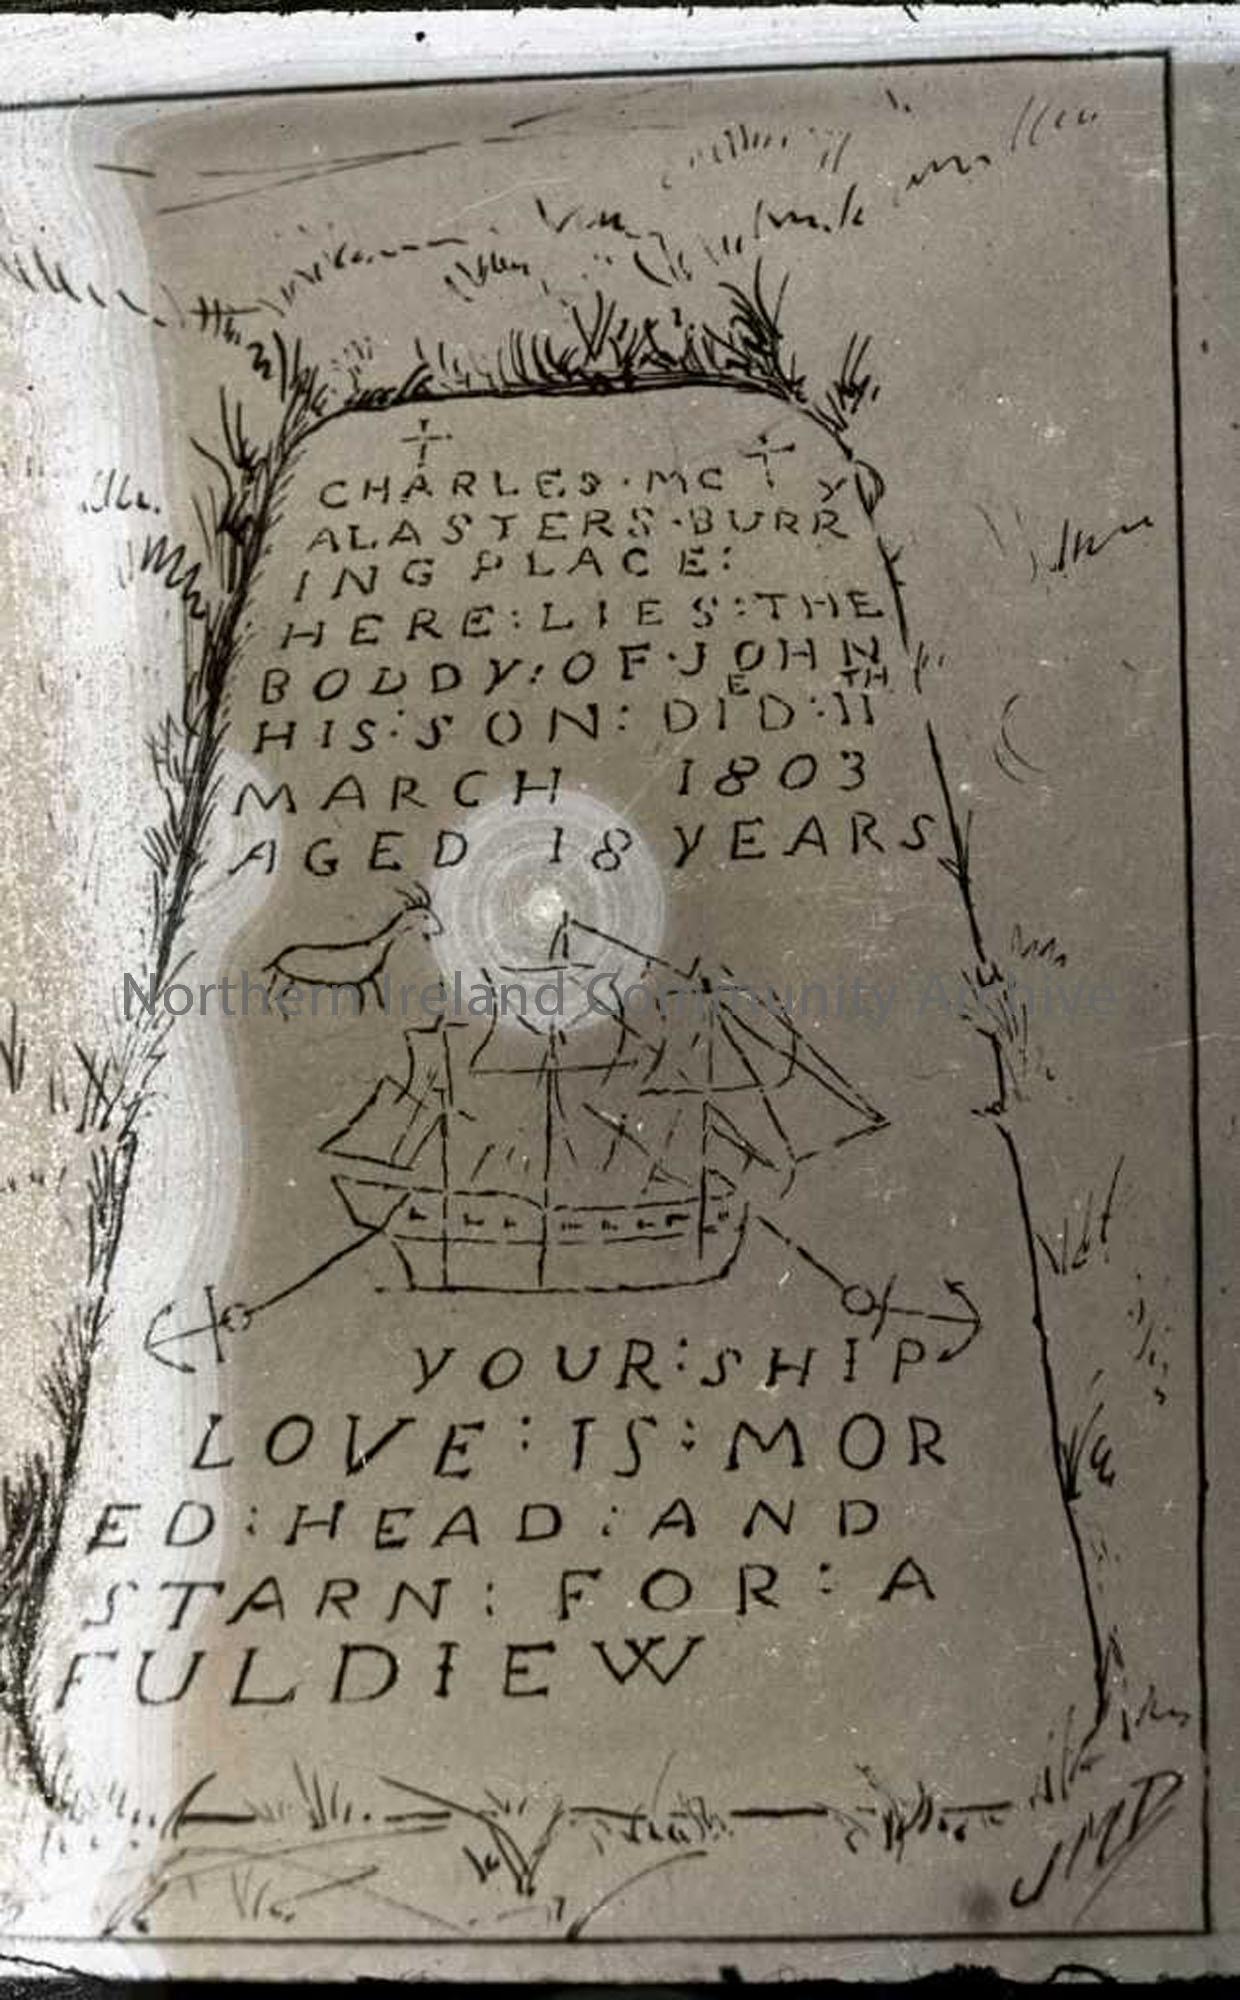 CHARLES·MC Y
ALASTERS·BURR
ING PLACE:
HERE:LIES:THE
BODDY:OF·JOHN
E TH
HIS:SON:DID:11
MARCH 1803
AGED 18 YEARS
Northern Ireland Community Archive
YOUR:SHIP
LOVE:IS:MOR
ED:HEAD:AND
STARN:FOR:A
FULDIEW
JMD